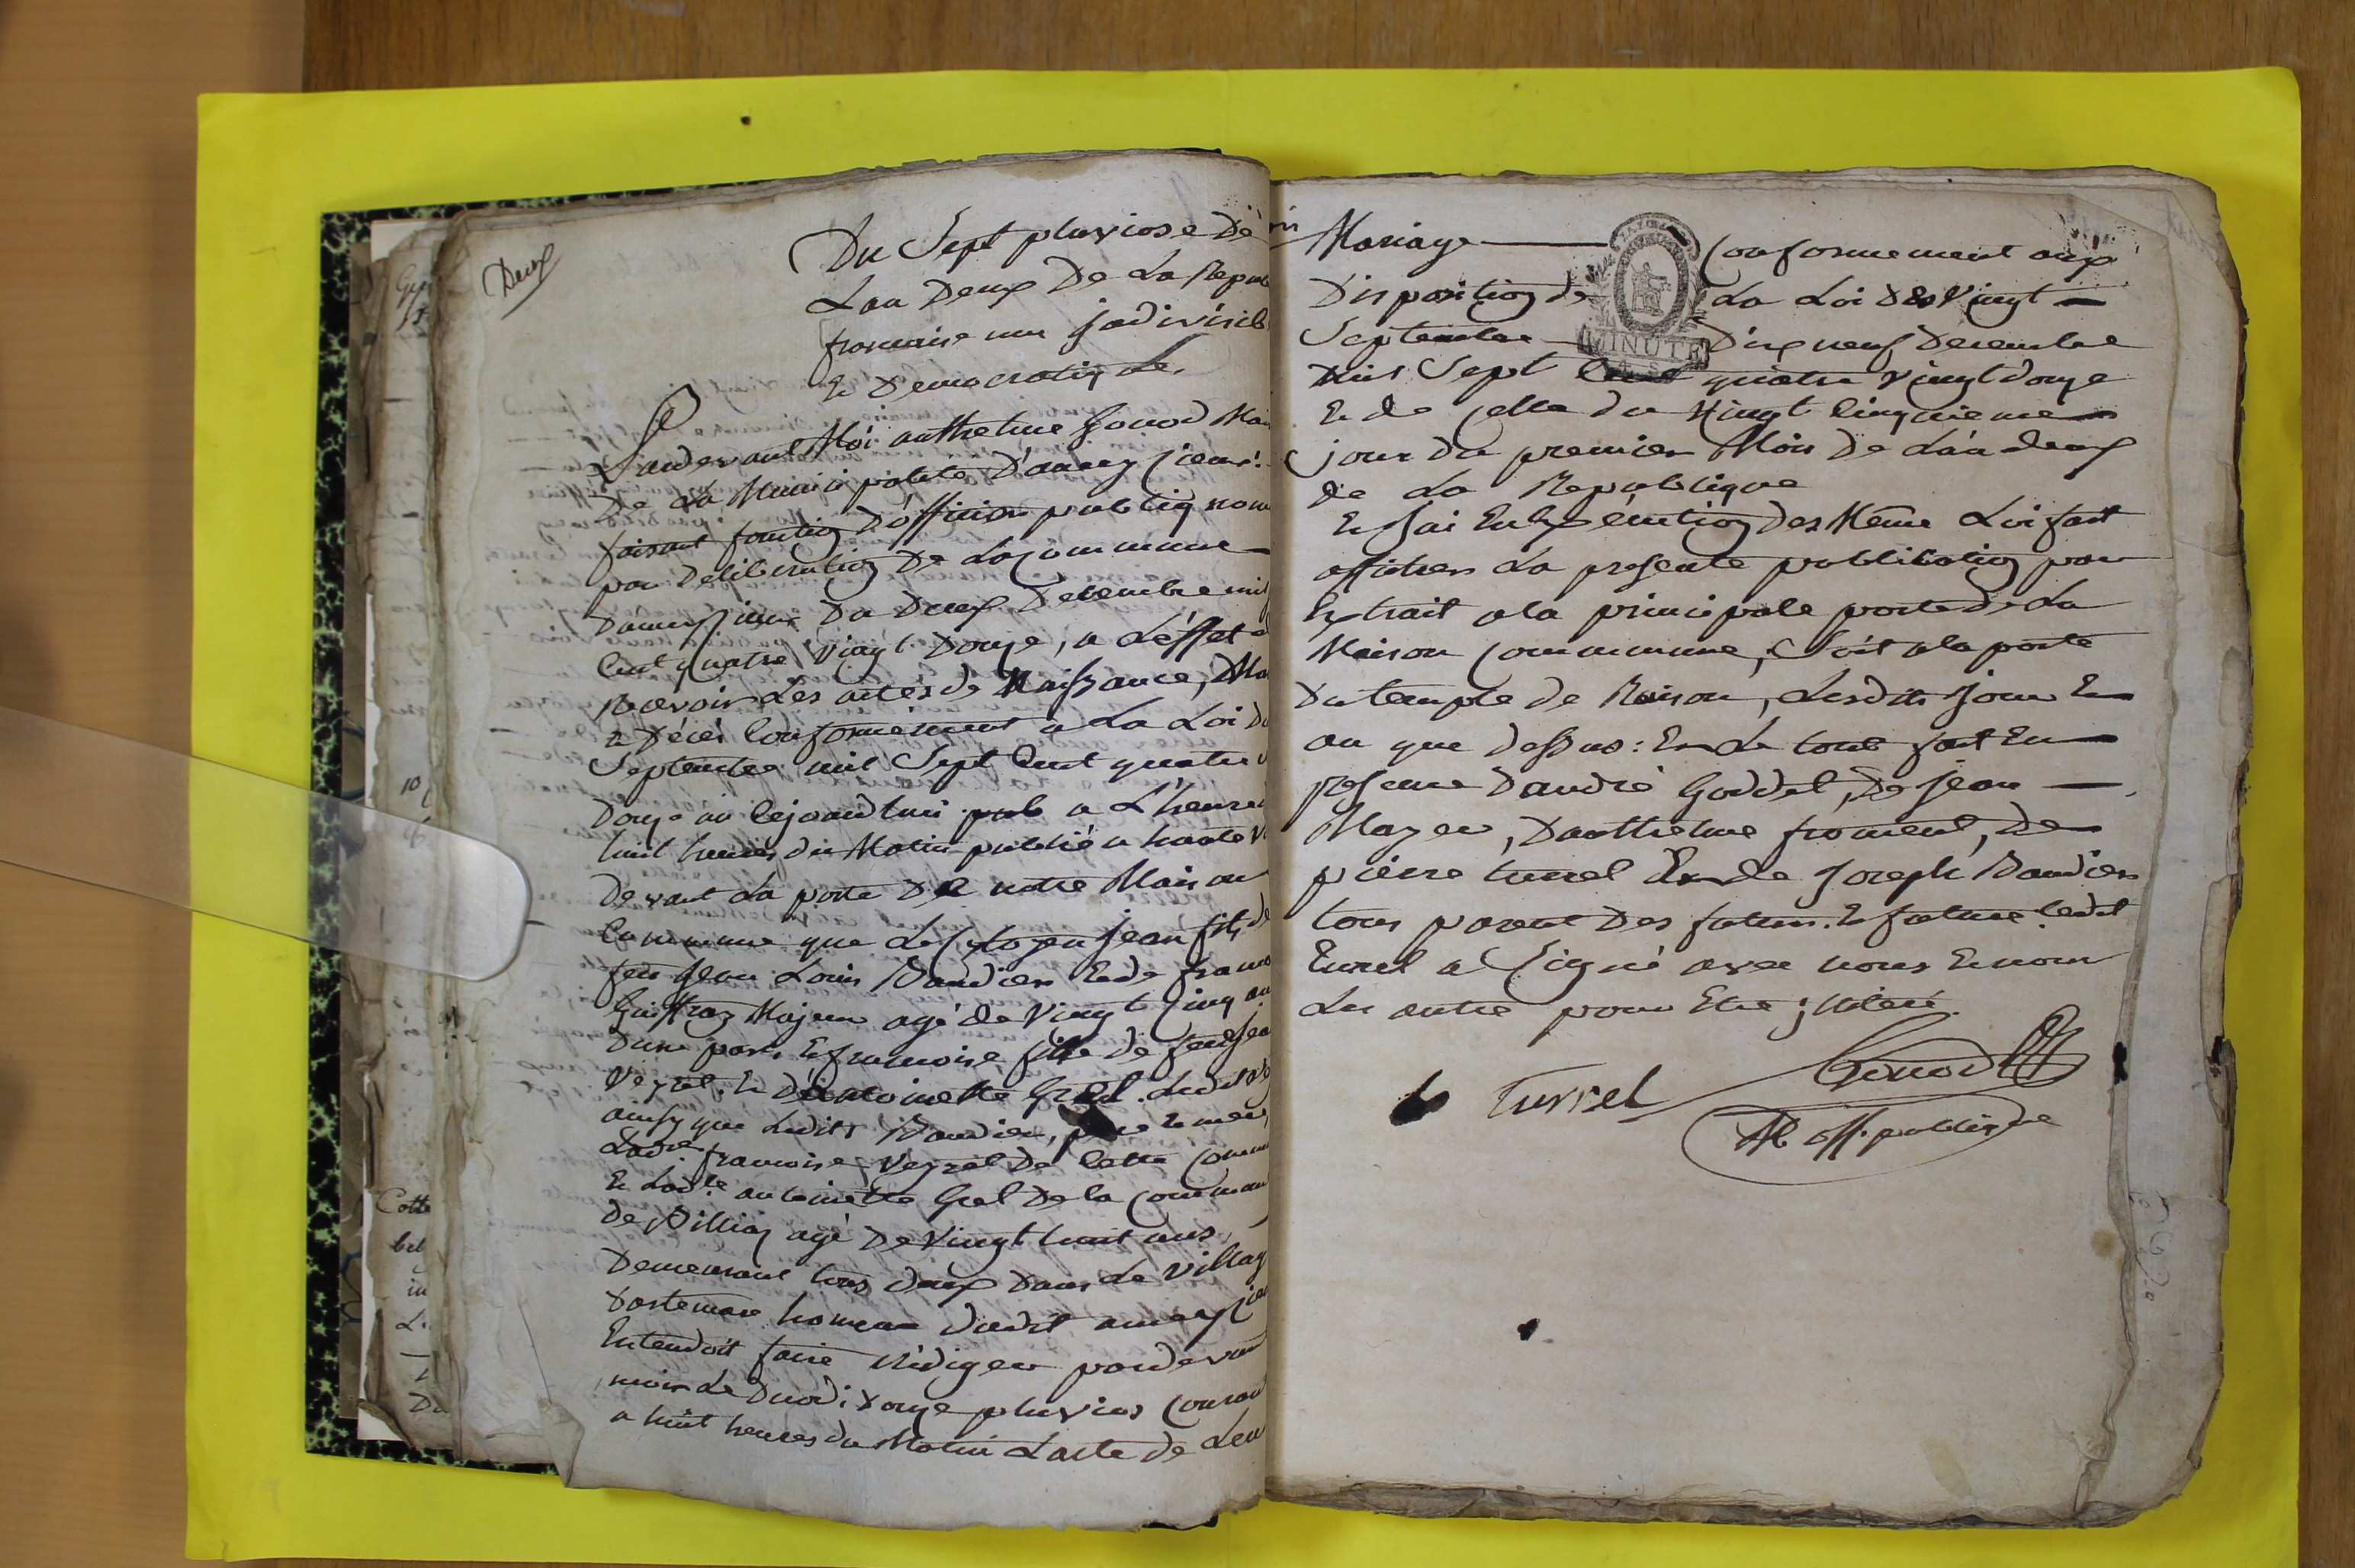 Deux
Du Sept pluviose De
Lan Deux De La Repu
francaise une jndivisib
Et Democratiq Le.
Pardevant Moi Anthelme Gonod Mai
De La Municipalité D'ameyzieux
faisant fonction D'officier publiq nom
par Deliberation De La Commune
Dameyzieux Du Deux Decembre mil
Cent quatre Vingt Douze, a Leffet d
Recevoir Les actes de Naissance, Ma
et Décés Conformement a La Loi Du
Septembre mil Sept Cent quatre v
Douze ai Cejourdhui pub a L'heure
huit heures du Matin publié a haute v
Devant La porte De notre Maison
Commune que Le Cytoyen Jean fils de
feu Jean Louis Baudier Et de franc
Majeur agé de Vingt Cinq an
Dune part, Et francoise fille de feu Jea
Veyret Et D'antoinette Grel. Ledit
ainsy que Ledit Baudier, et mer,
Ladte francoise Veyret De Cette Comm
Et Ladte antoinette Grel De la Commun
de agé De Vingt huit ans,
Demeurant tous Deux Dans Le Villag
Dartemare hameau Dudit ameyzieu
Entendoit faire rédiger pardevan
moi Le Duodi Douze pluvios Couran
a huit heures du Matin L'acte de Leu
Mariage Conformement aux
Disposition de La Loi Des Vingt
Septembre Dix neuf Decembre
Mil Sept Cent quatre Vingt Douze
Et de Celle du Vingt Cinquieme
jour Du premier Mois De L'an deux
de La Republique
Et Jai En Execution Des Même Loi fait
afficher La presente publication par
Extrait a la principale porte de La
Maison Commune, Soit a la porte
Du temple de Raison, Lesdits jour Et
an que Dessus: Et Le tout fait En
presence D'andré Goddet, De Jean
Mayer, D'anthelme froment, De
pierre turrel Et de Joseph Baudier
tous parent Des futur Et future Ledit
Turrel a Signé avec nous Et non
Les autre pour Etre jlliteré
Turrel Gonod
off. publiq
MINUTE